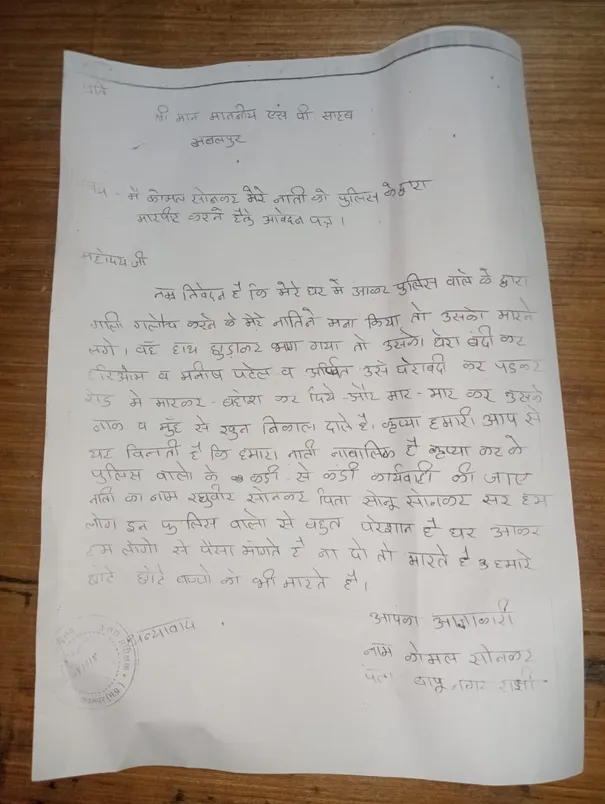 प्रति
श्री मान माननीय एस पी साहब
जबलपुर
विषय - मै कोमल सोनकर मेरे नाती को पुलिस के द्वारा
मारपीट करने हेतु आवेदन पत्र ।
महोदय जी
नम्र निवेदन है कि मेरे घर मे आकर पुलिस वाले के द्वारा
गाली गलौच करने के मेरे नातिने मना किया तो उसको मारने
लगे । वह हाथ छुड़ाकर भाग गया तो उसको घेरा बंदी कर
हरिओम व मनीष पटेल व अर्पित उसे घेराबंदी कर पडकर
रोड मे मारकर - बेहोश कर दिये और मार - मार कर उसके
नाक व मुँह से खुन निकाल दाते है । कृप्या हमारी आप से
यह विनती है कि हमारा नाती नाबालिक है कृप्या कर के
पुलिस वालो के कडी - से कडी कार्यवाही की जाए
नाती का नाम रघुवीर सोनकर पिता सोनू सोनकर सर हम
लोग इन पुलिस वालो से बहुत परेशान है घर आकर
हम लोगो से पैसा मंगते है ना दो तो मारते है हमारे
छोटे छोटे बच्चो को भी मारते है ।
धन्यावाद
आपका आज्ञाकारी
नाम कोमल सोनकर
पता बापू नगर रांझी